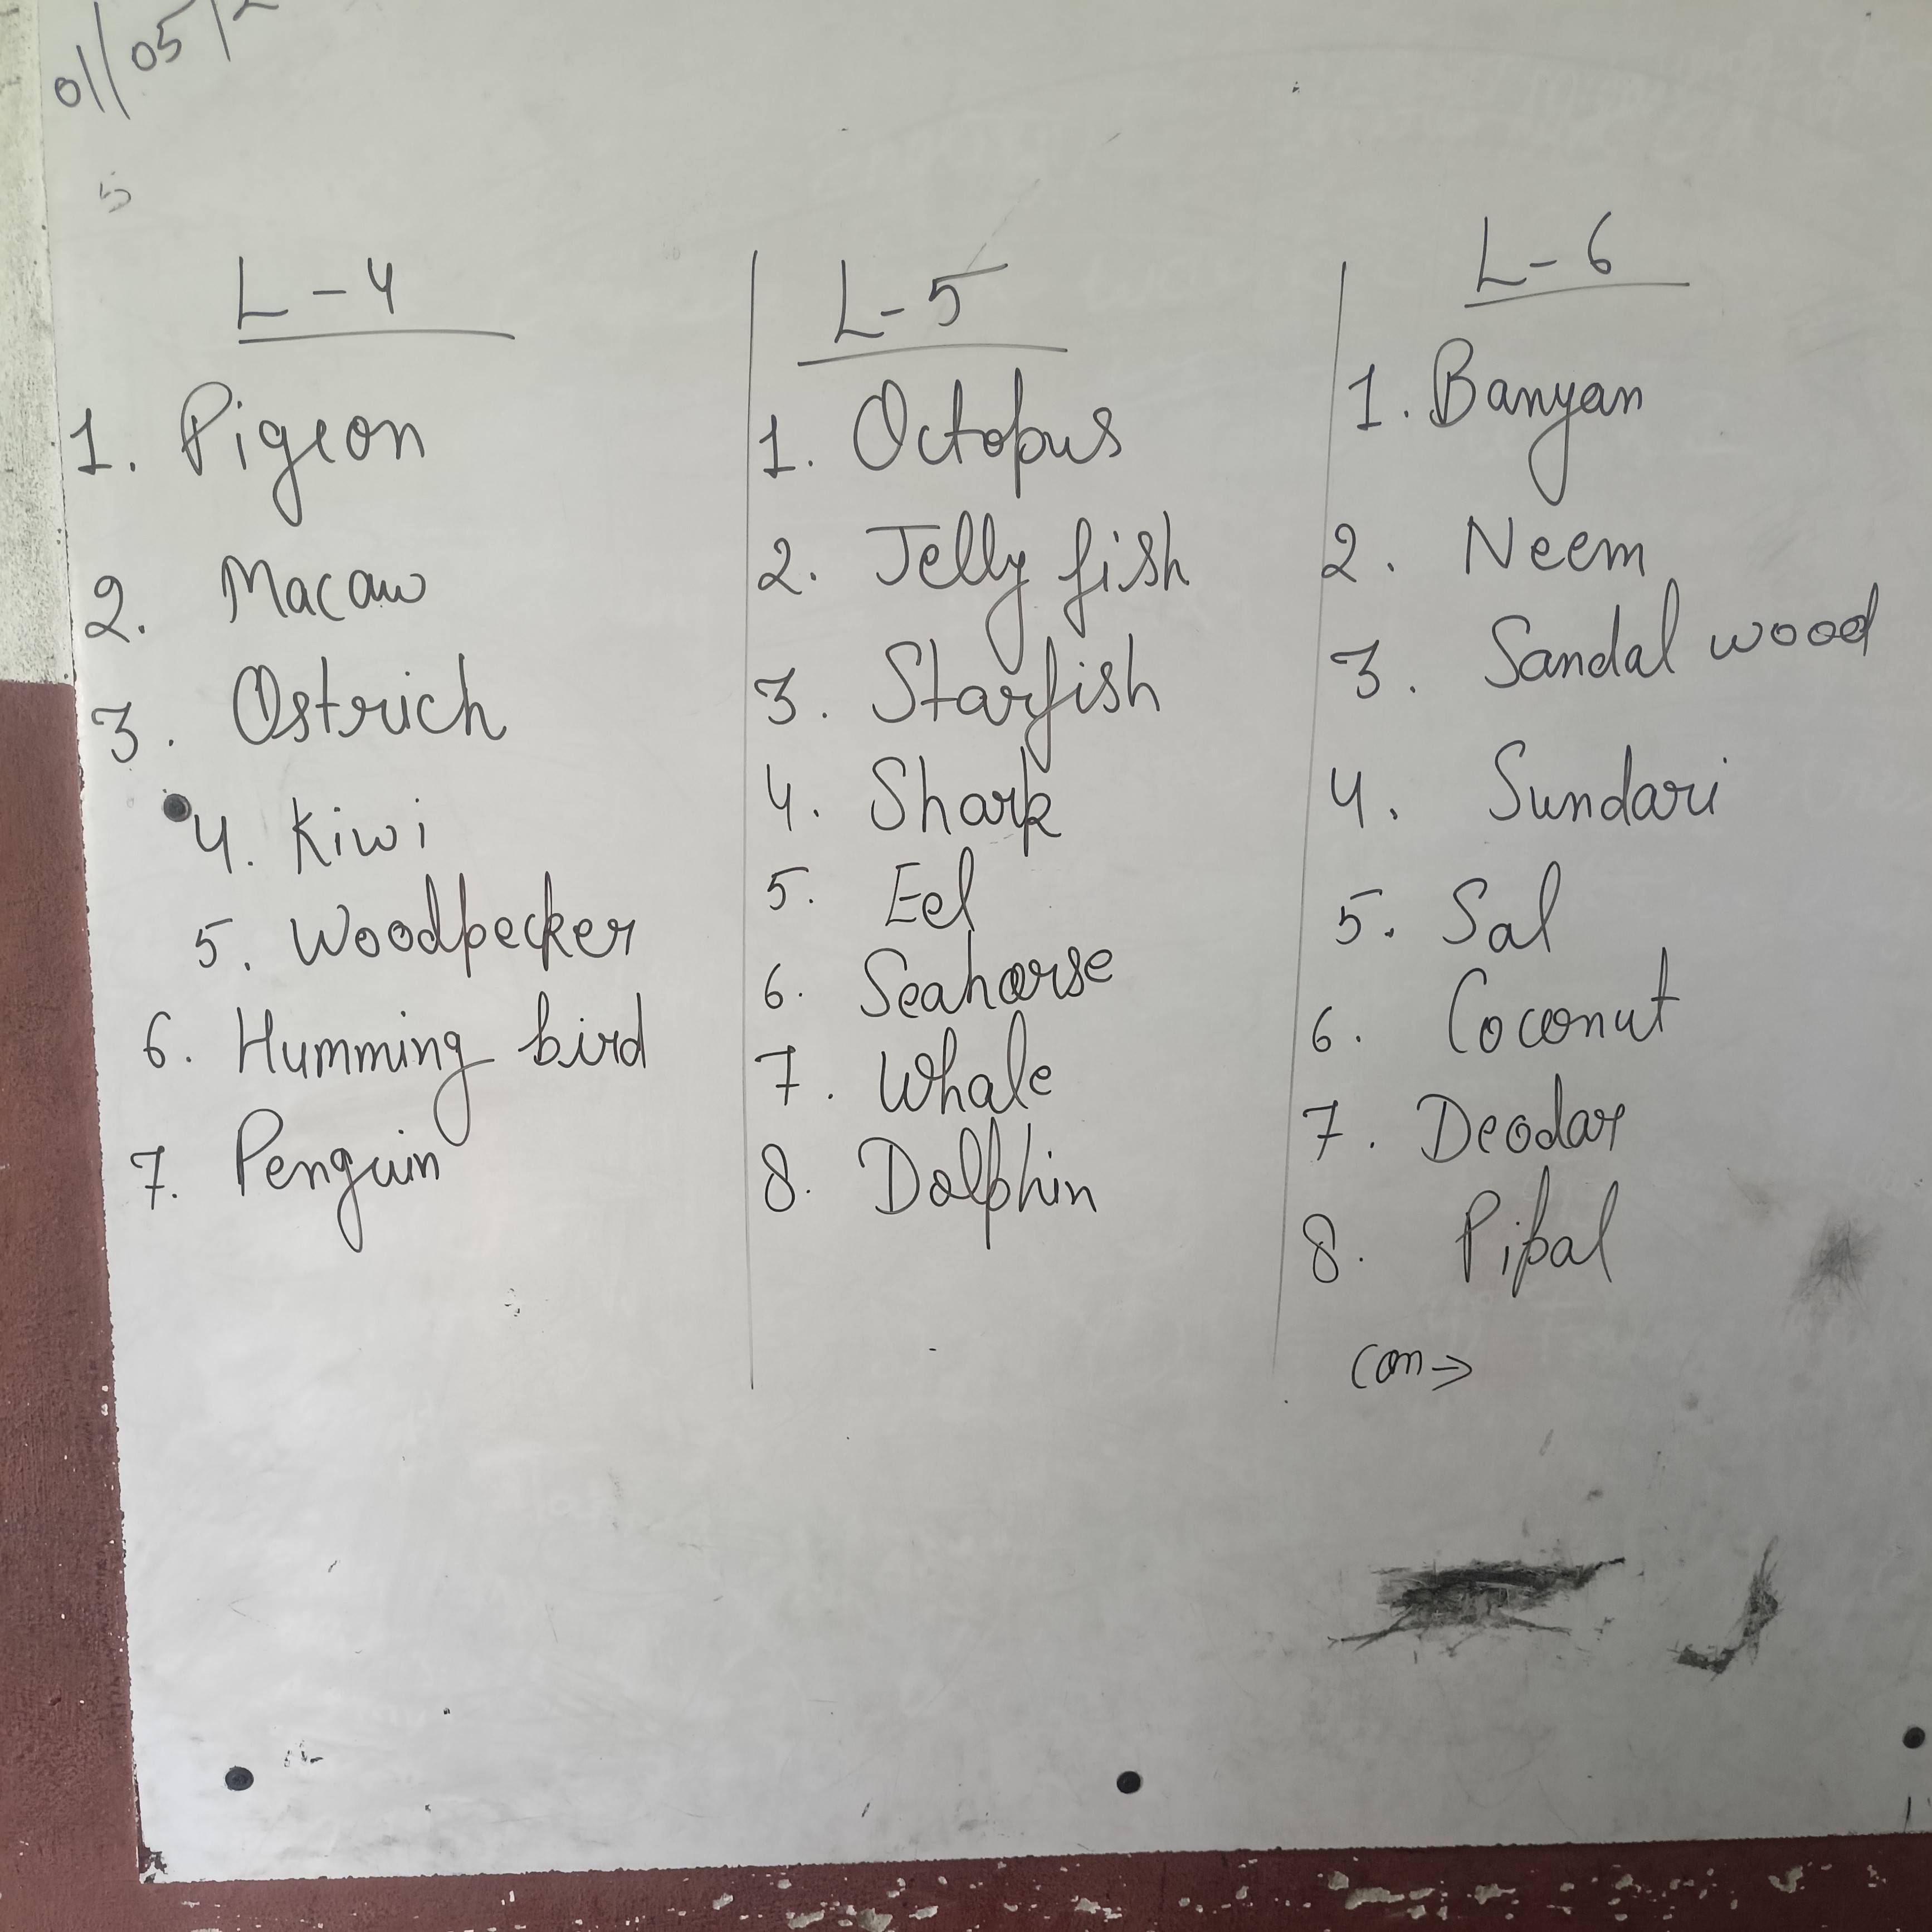 01/05/2
5
L-4
1. Pigeon
2. Macaw
3. Ostrich
4. Kiwi
5. Woodpecker
6. Humming bird
7. Penguin
L-5
1. Octopus
2. Jelly fish
3. Starfish
4. Shark
5. Eel
6. Seahorse
7. Whale
8. Dolphin
L-6
1. Banyan
2. Neem
3. Sandal wood
4. Sundari
5. Sal
6. Coconut
7. Deodar
8. Pipal
Con→